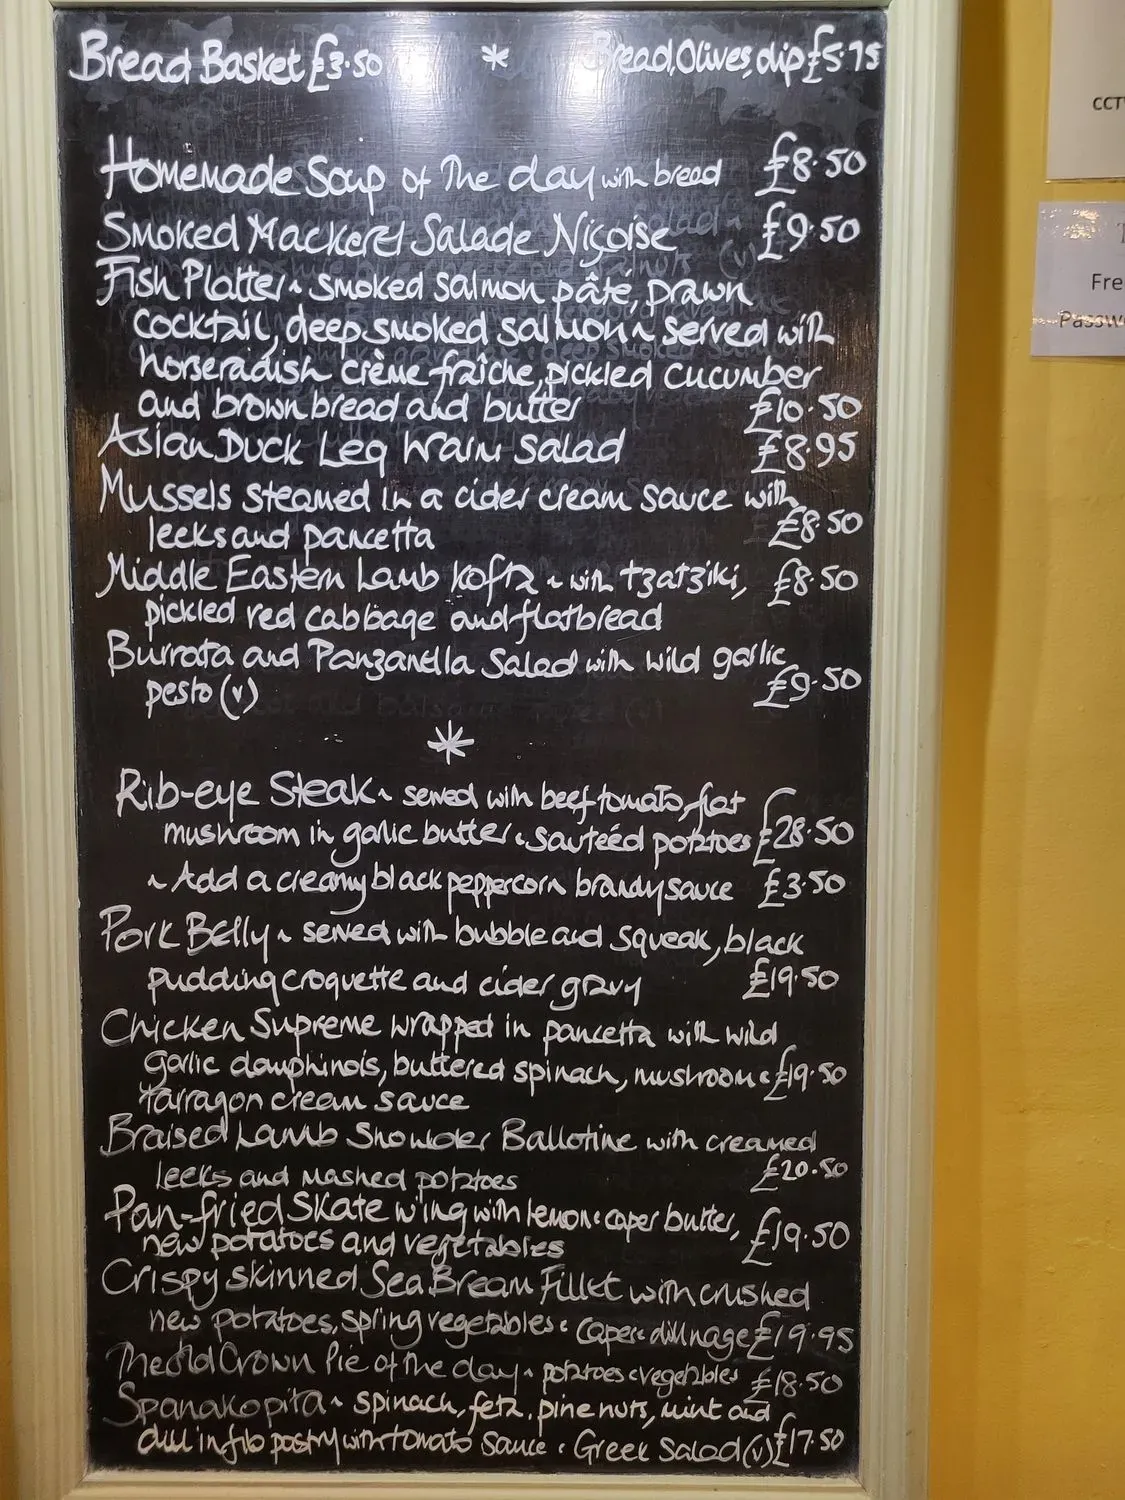 Bread Basket £3.50 * Bread, Olives, dip £5.75
Homemade Soup of The day with bread £8.50
Smoked Mackerel Salade Niçoise £9.50
Fish Platter ~ smoked salmon pâté, prawn
cocktail, deep smoked salmon ~ served with
horseradish crème fraîche, pickled cucumber
and brown bread and butter £10.50
Asian Duck Leg Warm Salad £8.95
Mussels steamed in a cider cream sauce with
leeks and pancetta £8.50
Middle Eastern Lamb Kofta ~ with tzatziki, £8.50
pickled red cabbage and flatbread
Burrata and Panzanella Salad with wild garlic
pesto (v) £9.50
*
Rib-eye Steak ~ served with beef tomato, flat
mushroom in garlic butter & sautéed potatoes £28.50
~ Add a creamy black peppercorn brandy sauce £3.50
Pork Belly ~ served with bubble and squeak, black
pudding croquette and cider gravy £19.50
Chicken Supreme wrapped in pancetta with wild
garlic dauphinois, buttered spinach, mushroom & £19.50
tarragon cream sauce
Braised Lamb Shoulder Ballotine with creamed
leeks and mashed potatoes £20.50
Pan-fried Skate wing with lemon & caper butter, £19.50
new potatoes and vegetables
Crispy skinned Sea Bream Fillet with crushed
new potatoes, spring vegetables & caper & dill nage £19.95
The Old Crown Pie of the day ~ potatoes & vegetables £18.50
Spanakopita ~ spinach, feta, pine nuts, mint and
dill in filo pastry with tomato sauce & Greek Salad (v) £17.50
CCT
Fre
Passw